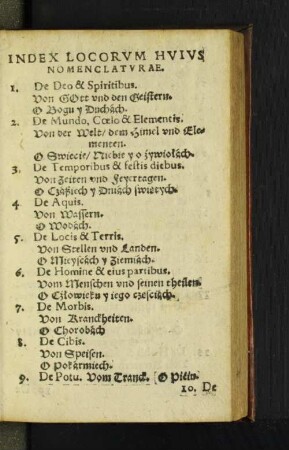 INDEX LOCORVM HVIVS
NOMENCLATVRAE.
1. De Deo & Spiritibus.
Von GOtt vnd den Geistern.
O Bogu y Duchách.
2. De Mundo, Cœlo & Elementis.
Von der Welt/ dem Himel vnd Ele-
menten.
O Swiecie/ Niebie y o żywiołách.
3. De Temporibus & festis diebus.
Von Zeiten vnd Feyertagen.
O Czáśiech y Dniách świętych.
4 De Aquis.
Von Wassern.
O Wodách.
5. De Locis & Terris.
Von Stellen vnd Landen.
O Mieyscách y Ziemiách.
6. De Homine & eius partibus.
Vom Menschen vnd seinen theilen.
O Człowieku y iego częsciách.
7. De Morbis.
Von Kranckheiten.
O Chorobách
8. De Cibis.
Von Speisen.
O Pokármiech.
9. De Potu. Vom Tranck. [O Piciu.
10. De